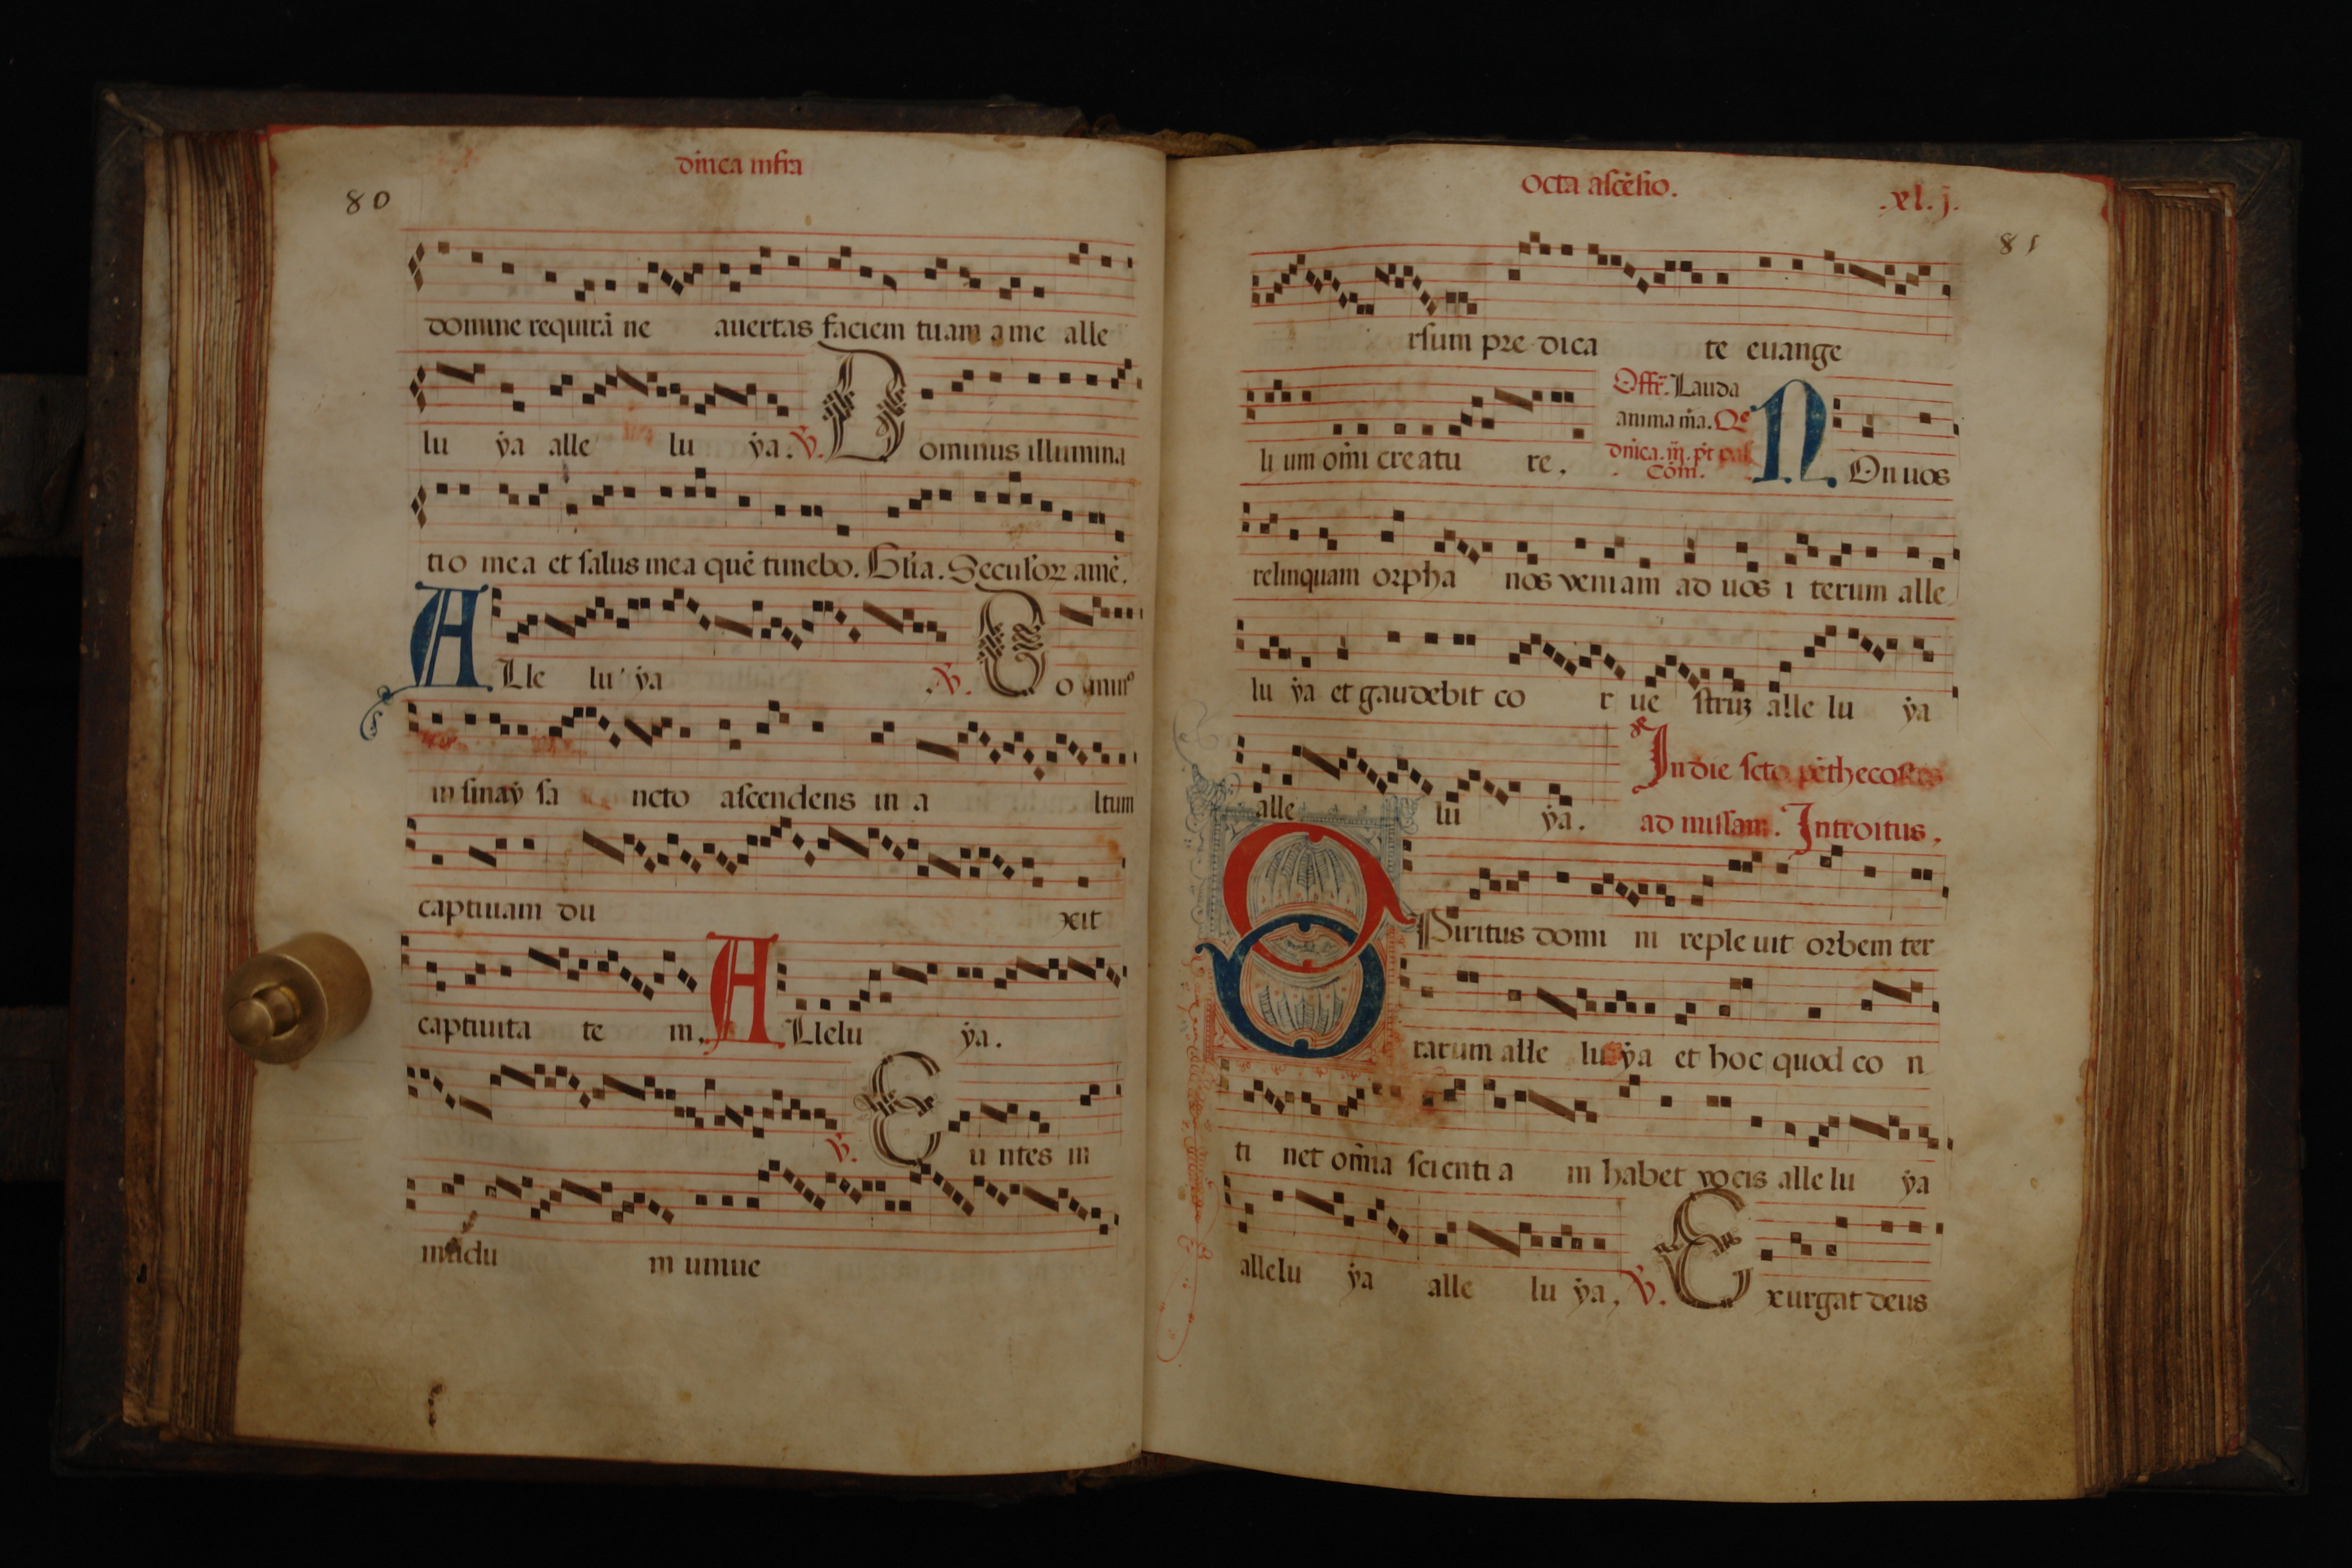 dnica infra
80
domine requirā ne auertas faciem tuam a me alle
lu ẏa alle lu ẏa. ℣. Dominus illumina
tio mea et salus mea quē timebo. Glia. Seculoꝝ amē.
ALle lu ẏa .℣. Dominꝰ
in sinaẏ sa ncto ascendens in a ltum
captiuam du xit
captiuita te m. ALlelu ẏa.
℣. Eu ntes in
mūdu m uniue
octa ascēsio.
.xl.j.
81
rsum pre dica te euange
li um om̄i creatu re.
Offr̄. Lauda
anima m̄a. Qe
dnica. iij. pt pas
Com̄.
NOn uos
relinquam orpha nos veniam ad uos i terum alle
lu ẏa et gaudebit co r ue strūʒ alle lu ẏa
alle lu ẏa.
In die scto pēthecostes
ad missam. Introitus.
SPiritus domi ni reple uit orbem ter
rarum alle lu ẏa et hoc quod co n
ti net om̄ia scienti a m habet vocis alle lu ẏa
allelu ẏa alle lu ẏa. ℣. Exurgat deus